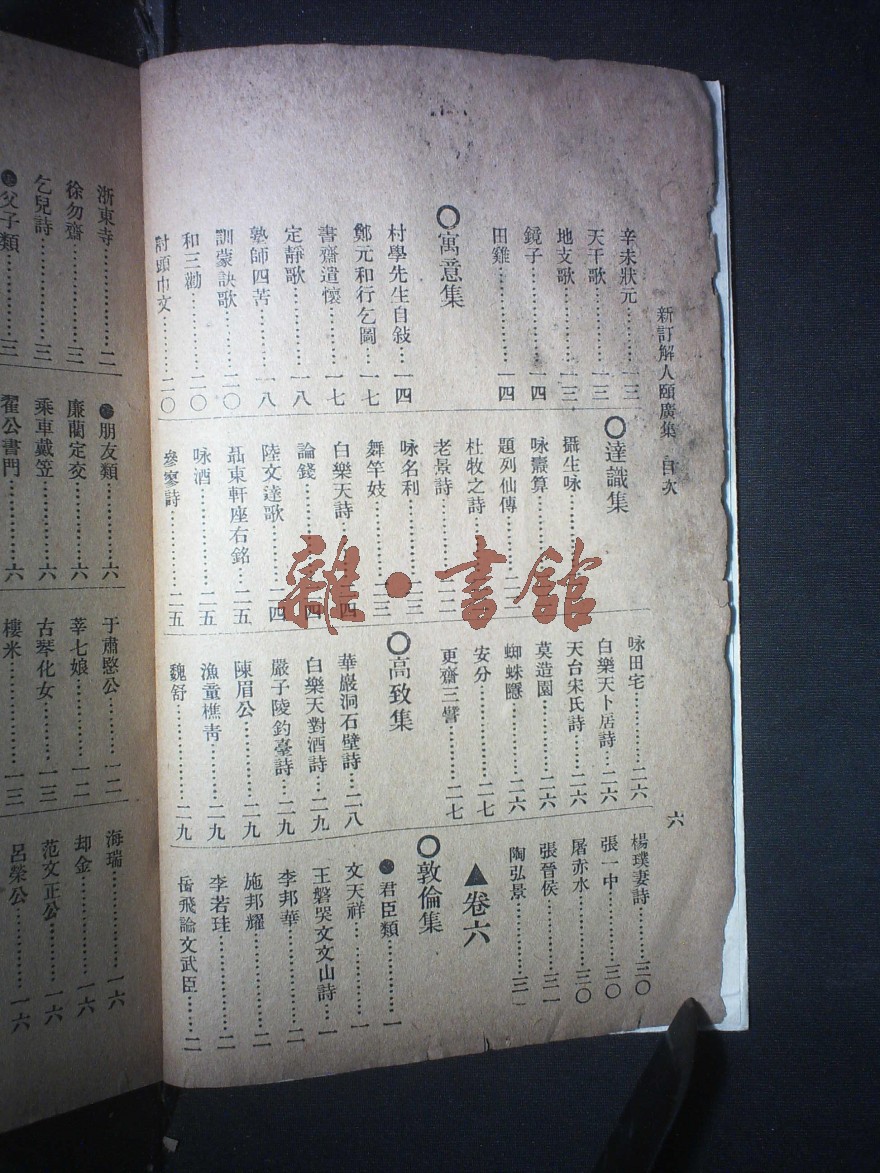 新訂解人頤廣集　目次
六
辛未狀元…一三
天干歌…一三
地支歌…一三
鏡子…一四
田雞…一四
〇寓意集
村學先生自敍…一四
鄭元和行乞圖…一七
書齋遣懷…一七
定靜歌…一八
塾師四苦…一八
訓蒙訣歌…二〇
和三勸…二〇
討頭巾文…二〇
〇達識集
攝生咏
咏壽算
題列仙傳
杜牧之詩
老景詩
咏名利…三
舞竿妓…三
白樂天詩…四
論錢…四
陸文達歌…四
聶東軒座右銘…二五
咏酒…二五
參寥詩…二五
咏田宅…二六
白樂天卜居詩…二六
天台宋氏詩…二六
莫造園…二六
蜘蛛隱…二六
安分…二七
更齋三譬…二七
〇高致集
華嚴洞石壁詩…二八
白樂天對酒詩…二九
嚴子陵釣臺詩…二九
陳眉公…二九
漁童樵靑…二九
魏舒…二九
楊璞妻詩…三〇
張一中…三〇
屠赤水…三〇
張晉侯…三一
陶弘景…三一
▲卷六
〇敦倫集
●君臣類…一
文天祥…一
王磐哭文文山詩…一
李邦華…二
施邦耀…二
李若珪…二
岳飛論文武臣…二
浙東寺…二
徐勿齋…三
乞兒詩…三
父子類…三
朋友類…六
廉藺定交…六
乘車戴笠…六
翟公書門…六
于肅愍公…一二
莘七娘…一二
古琴化女…一三
樓米…一三
海瑞…一六
却金…一六
范文正公…一六
呂榮公…一六
雜·書館